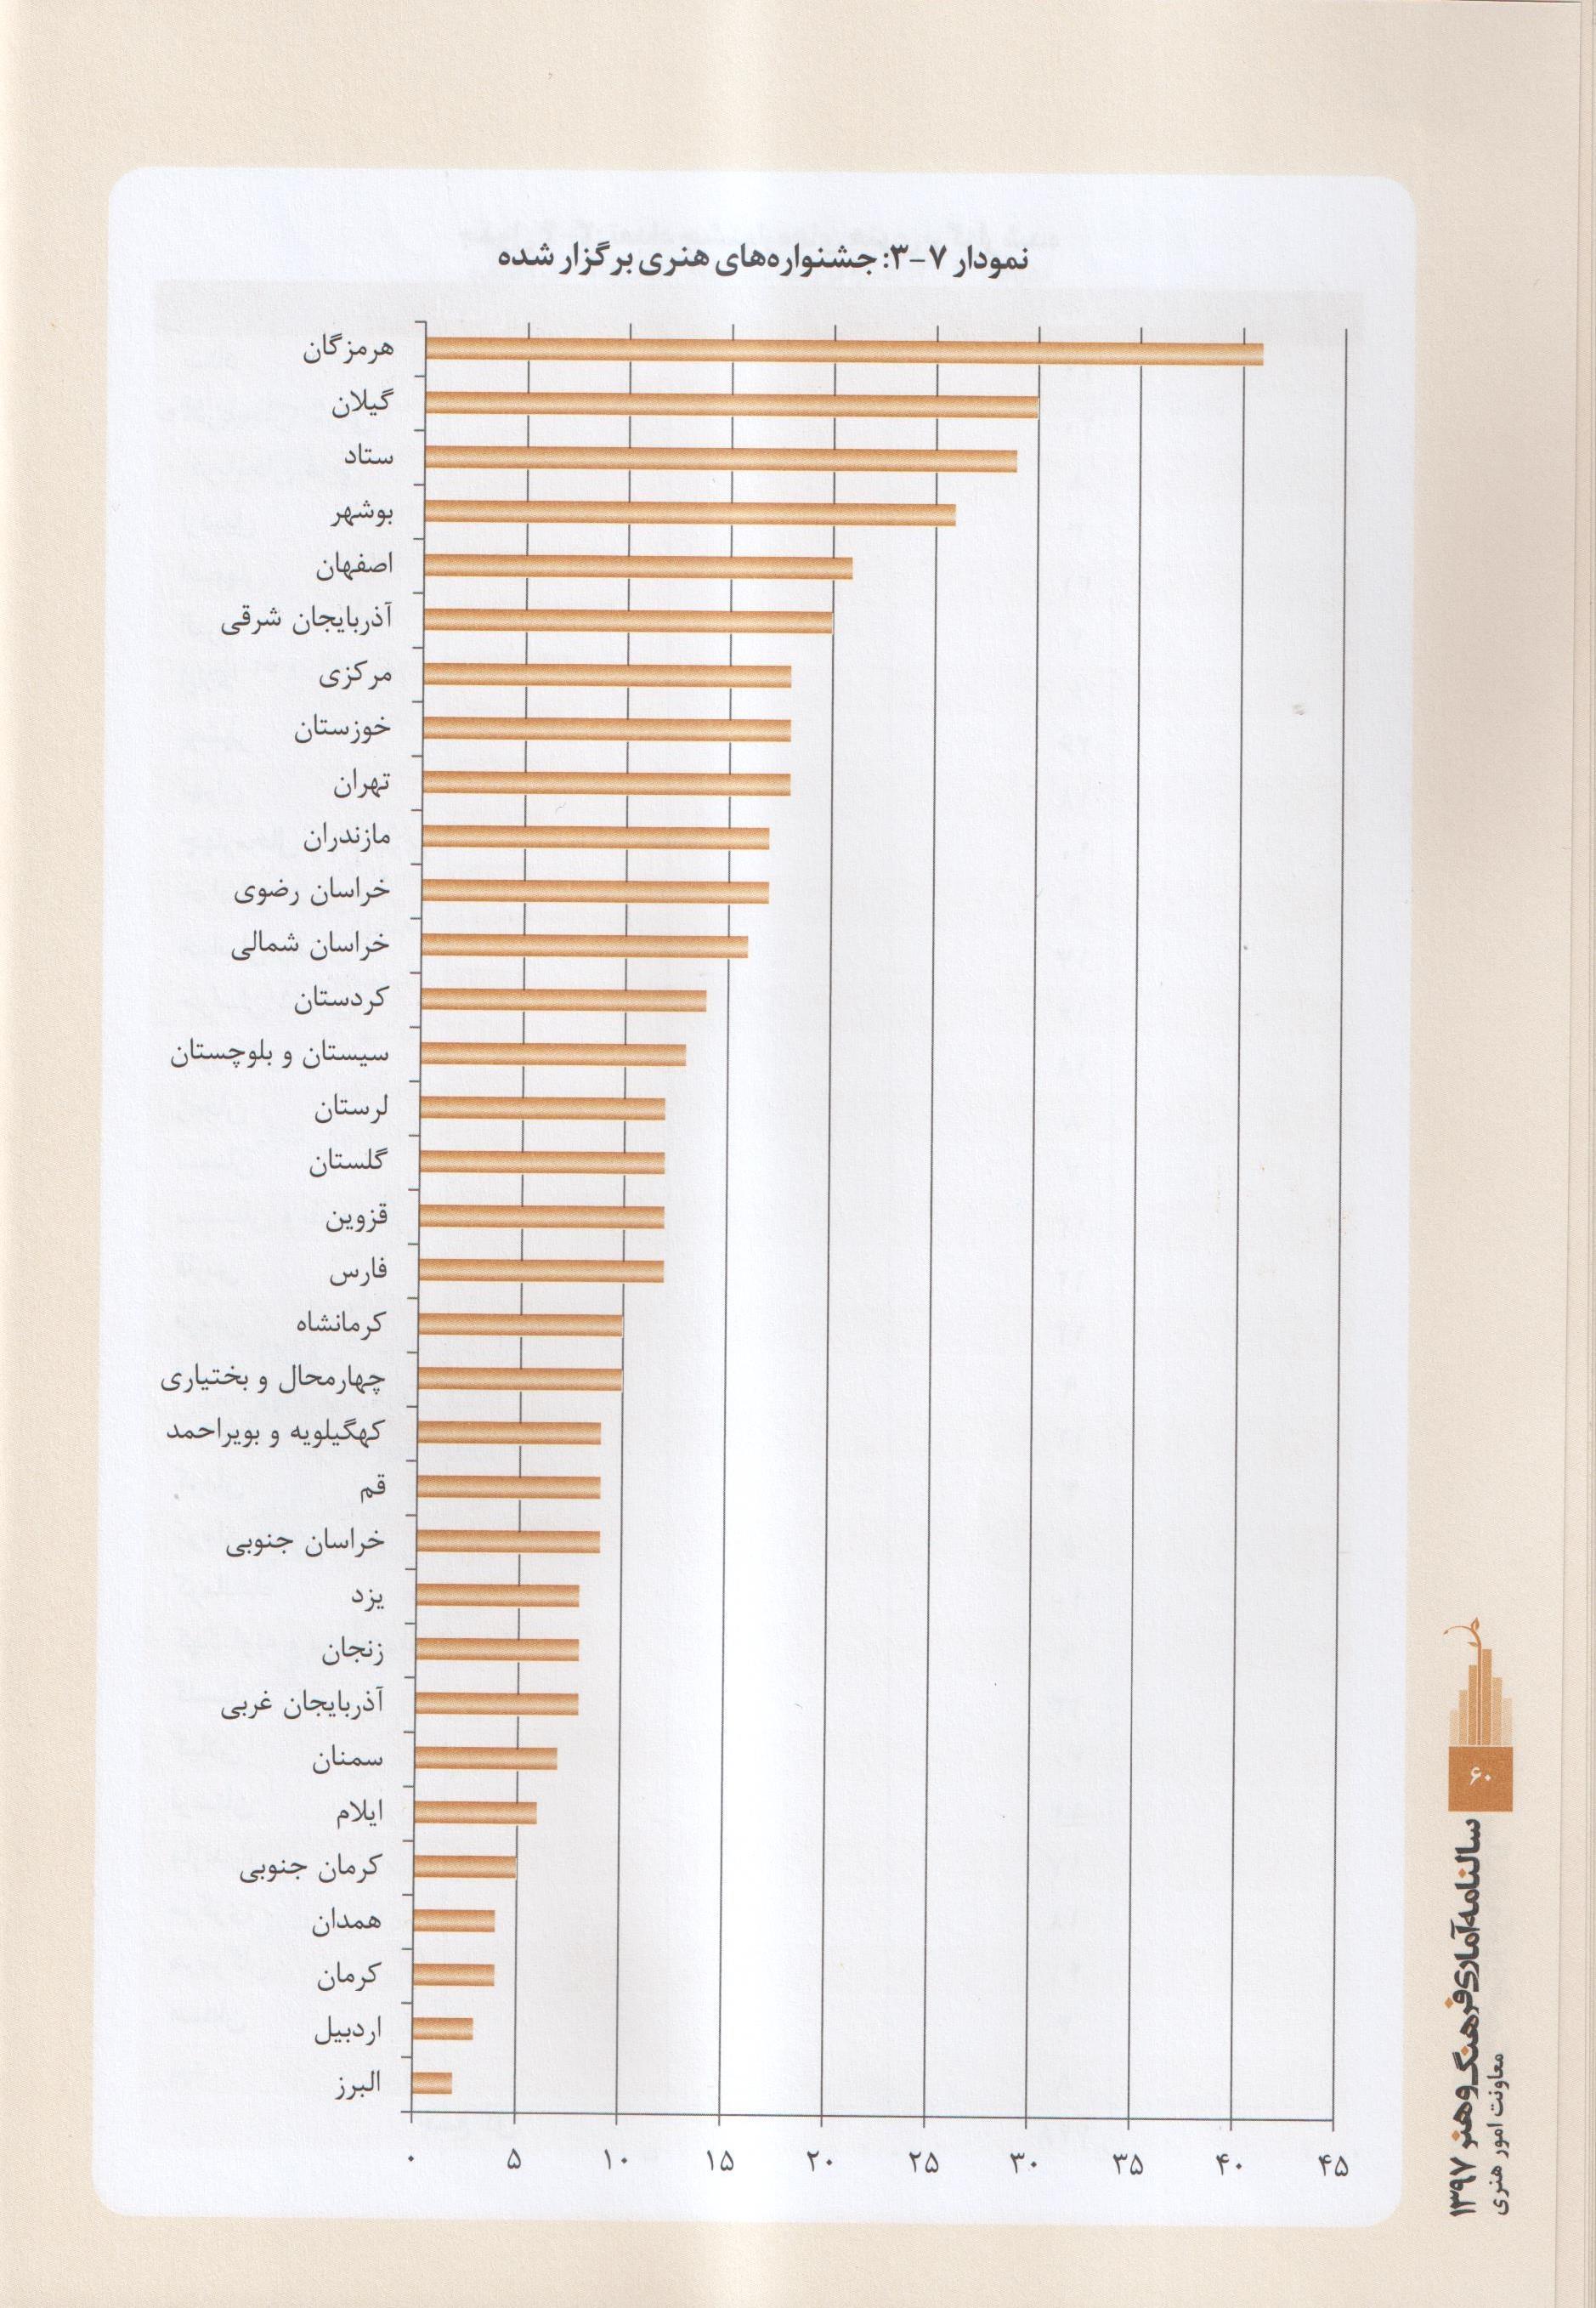 نمودار ۷-۳: جشنواره‌های هنری برگزار شده
هرمزگان
گیلان
ستاد
بوشهر
اصفهان
آذربایجان شرقی
مرکزی
خوزستان
تهران
مازندران
خراسان رضوی
خراسان شمالی
کردستان
سیستان و بلوچستان
لرستان
گلستان
قزوین
فارس
کرمانشاه
چهارمحال و بختیاری
کهگیلویه و بویراحمد
قم
خراسان جنوبی
یزد
زنجان
آذربایجان غربی
سمنان
ایلام
کرمان جنوبی
همدان
کرمان
اردبیل
البرز
۰ ۵ ۱۰ ۱۵ ۲۰ ۲۵ ۳۰ ۳۵ ۴۰ ۴۵
۶۰
سالنامه آماری فرهنگ و هنر ۱۳۹۷
معاونت امور هنری